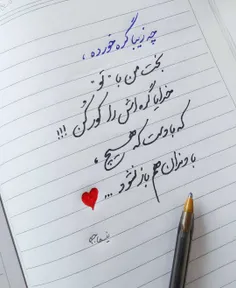 چه زیبا گره خورده،
بخت من با "تو"
خدایا گره اش را کور کن !!!
که با دست که هیچ،
با دندان هم باز نشود ...